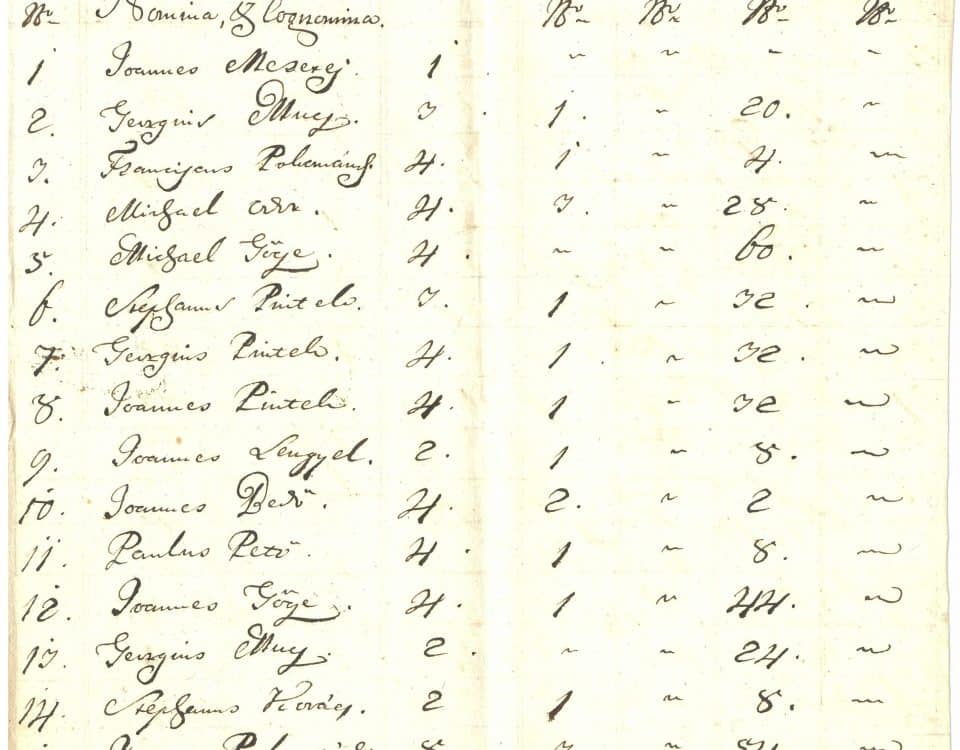 Nro Nomina, & Cognomina. Nro Nro Nro Nro
1 Joannes Meszej. 1 " " " "
2. Georgius Mucj. 3 1. " 20. "
3. Franciscus 4. 1 " 4. "
4. Michael 4. 3. " 28. "
5. Michael Göÿe. 4. " " 60. "
6. Stephanus Pinteh. 3. 1 " 32. "
7. Georgius Pinteh. 4. 1. " 32. "
8. Joannes Pinteh. 4. 1 " 32 "
9. Joannes Lengyel. 2. 1 " 8. "
10. Joannes Bedö. 4. 2. " 2 "
11. Paulus Petö. 4. 1 " 8. "
12. Joannes Göÿe. 4. 1 " 44. "
13. Georgius Mucj. 2. " " 24. "
14. Stephanus Kovácj. 2 1 " 8. "